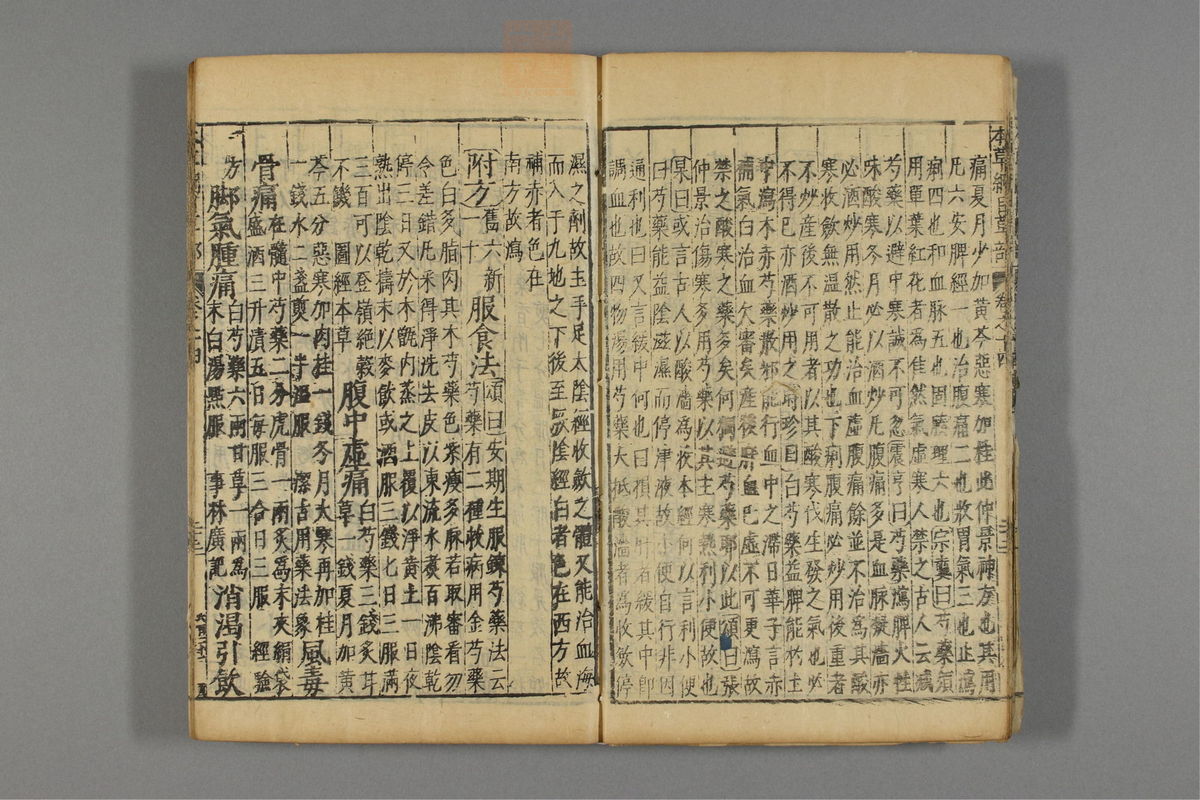 本草綱目草部 卷之十四
痛夏月少加黃芩惡寒加桂此仲景神方也其用
凡六安脾經一也治腹痛二也收胃氣三也止瀉
痢四也和血脉五也固腠理六也宗奭曰芍藥須
用單葉紅花者為佳然氣虛寒人禁之古人云減
芍藥以避中寒誠不可忽震亨曰芍藥瀉脾火性
味酸寒冬月必以酒炒凡腹痛多是血脉凝濇亦
必酒炒用然止能治血虛腹痛餘並不治為其酸
寒收斂無溫散之功也下痢腹痛必炒用後重者
不炒產後不可用者以其酸寒伐生發之氣也必
不得已亦酒炒用之時珍曰白芍藥益脾能於土
中瀉木赤芍藥散邪能行血中之滯日華子言赤
補氣白治血欠審矣產後肝血已虛不可更瀉故
禁之酸寒之藥多矣何獨避芍藥耶以此頌曰張
仲景治傷寒多用芍藥以其主寒熱利小便故也
杲曰或言古人以酸濇為收本經何以言利小便
曰芍藥能益陰滋濕而停津液故小便自行非因
通利也曰又言緩中何也曰損其肝者緩其中即
調血也故四物湯用芍藥大抵酸濇者為收斂停
濕之劑故主手足太陰經收斂之體又能治血海
而入于九地之下後至厥陰經白者色在西方故
補赤者色在
南方故瀉
附方 舊六新十 服食法 頌曰安期生服鍊芍藥法云芍藥有二種救病用金芍藥
色白多脂肉其木芍藥色紫瘦多脉若取審看勿
令差錯凡采得淨洗去皮以東流水煑百沸陰乾
停三日又於木甑內蒸之上覆以淨黃土一日夜
熟出陰乾擣末以麥飲或酒服三錢匕日三服滿
三百可以登嶺絕穀
不饑 圖經本草 腹中虛痛 白芍藥三錢炙甘草一錢夏月加黃
芩五分惡寒加肉桂一錢冬月大寒再加桂
一錢水二盞煎一半溫服 潔古用藥法象 風毒
骨痛 在髓中芍藥二分虎骨一兩炙為末夾絹袋
盛酒三升漬五日每服三合日三服 經驗
方 脚氣腫痛 白芍藥六兩甘草一兩為
末白湯點服 事林廣記 消渴引飲